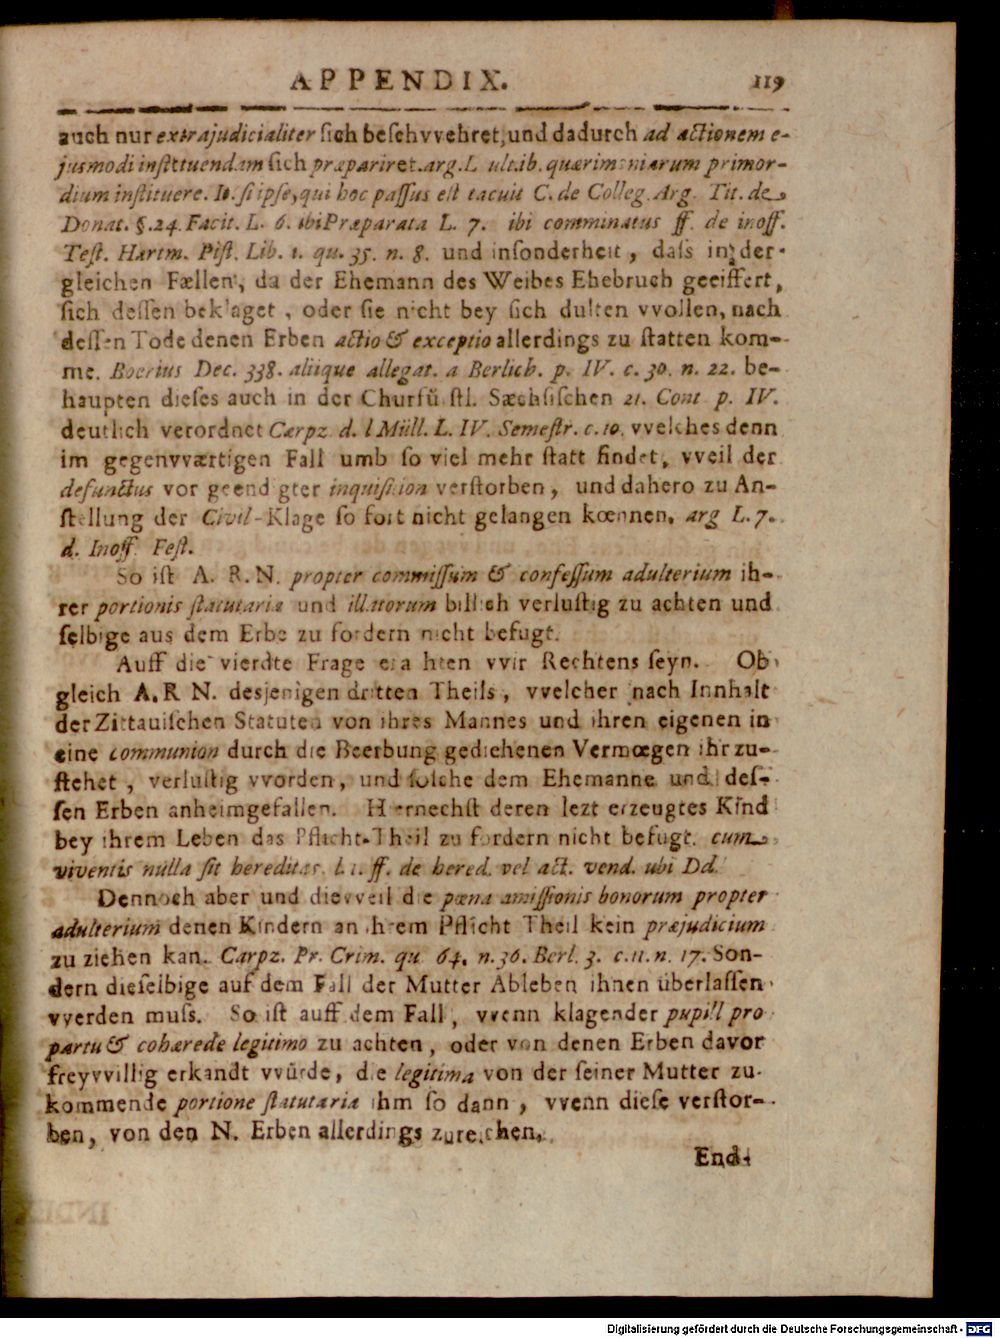 APPENDIX. 119
auch nur extrajudicialiter ſich beſchvvehret, und dadurch ad actionem e-
jusmodi inſtituendam ſich præpariret. arg. L. ult. ib. quærimoniarum primor-
dium inſtituere. It. ſi ipſe, qui hoc paſſus eſt tacuit C. de Colleg. Arg. Tit. de
Donat. §. 24. Facit. L. 6. ibi Præparata L. 7. ibi comminatus ff. de inoff.
Teſt. Hartm. Piſt. Lib. 1. qu. 35. n. 8. und inſonderheit, daſs in der-
gleichen Fællen, da der Ehemann des Weibes Ehebruch geeiffert,
ſich deſſen beklaget, oder ſie nicht bey ſich dulten vvollen, nach
deſſen Tode denen Erben actio & exceptio allerdings zu ſtatten kom-
me. Boerius Dec. 338. aliique allegat. a Berlich. p. IV. c. 30. n. 22. be-
haupten dieſes auch in der Churfürſtl. Sæchſiſchen 21. Conſt. p. IV.
deutlich verordnet Carpz. d. l Müll. L. IV. Semeſtr. c. 10. vvelches denn
im gegenvværtigen Fall umb ſo viel mehr ſtatt findet, vveil der
defunctus vor geendigter inquiſition verſtorben, und dahero zu An-
ſtellung der Civil-Klage ſo fort nicht gelangen kœnnen, arg L. 7.
d. Inoff. Feſt.
So iſt A. R. N. propter commiſſum & confeſſum adulterium ih-
rer portionis ſtatutariæ und illatorum billich verluſtig zu achten und
ſelbige aus dem Erbe zu fordern nicht befugt.
Auff die vierdte Frage erachten vvir Rechtens ſeyn. Ob
gleich A. R N. desjenigen dritten Theils, vvelcher nach Innhalt
der Zittauiſchen Statuten von ihres Mannes und ihren eigenen in
eine communion durch die Beerbung gediehenen Vermœgen ihr zu-
ſtehet, verluſtig vvorden, und ſolche dem Ehemanne und deſ-
ſen Erben anheimgefallen. Hiernechſt deren lezt erzeugtes Kind
bey ihrem Leben das Pflicht-Theil zu fordern nicht befugt. cum
viventis nulla ſit hereditas. l. 1. ff. de hered. vel act. vend. ubi Dd.
Dennoch aber und dievveil die pœna amiſſionis bonorum propter
adulterium denen Kindern an ihrem Pflicht Theil kein præjudicium
zu ziehen kan. Carpz. Pr. Crim. qu 64. n. 36. Berl. 3. c. 11. n. 17. Son-
dern dieſelbige auf dem Fall der Mutter Ableben ihnen überlaſſen
vverden muſs. So iſt auff dem Fall, vvenn klagender pupill pro
partu & cohærede legitimo zu achten, oder von denen Erben davor
freyvvillig erkandt vvürde, die legitima von der ſeiner Mutter zu-
kommende portione ſtatutaria ihm ſo dann, vvenn dieſe verſtor-
ben, von den N. Erben allerdings zureichen.
End-
Digitalisierung gefördert durch die Deutsche Forschungsgemeinschaft - DFG